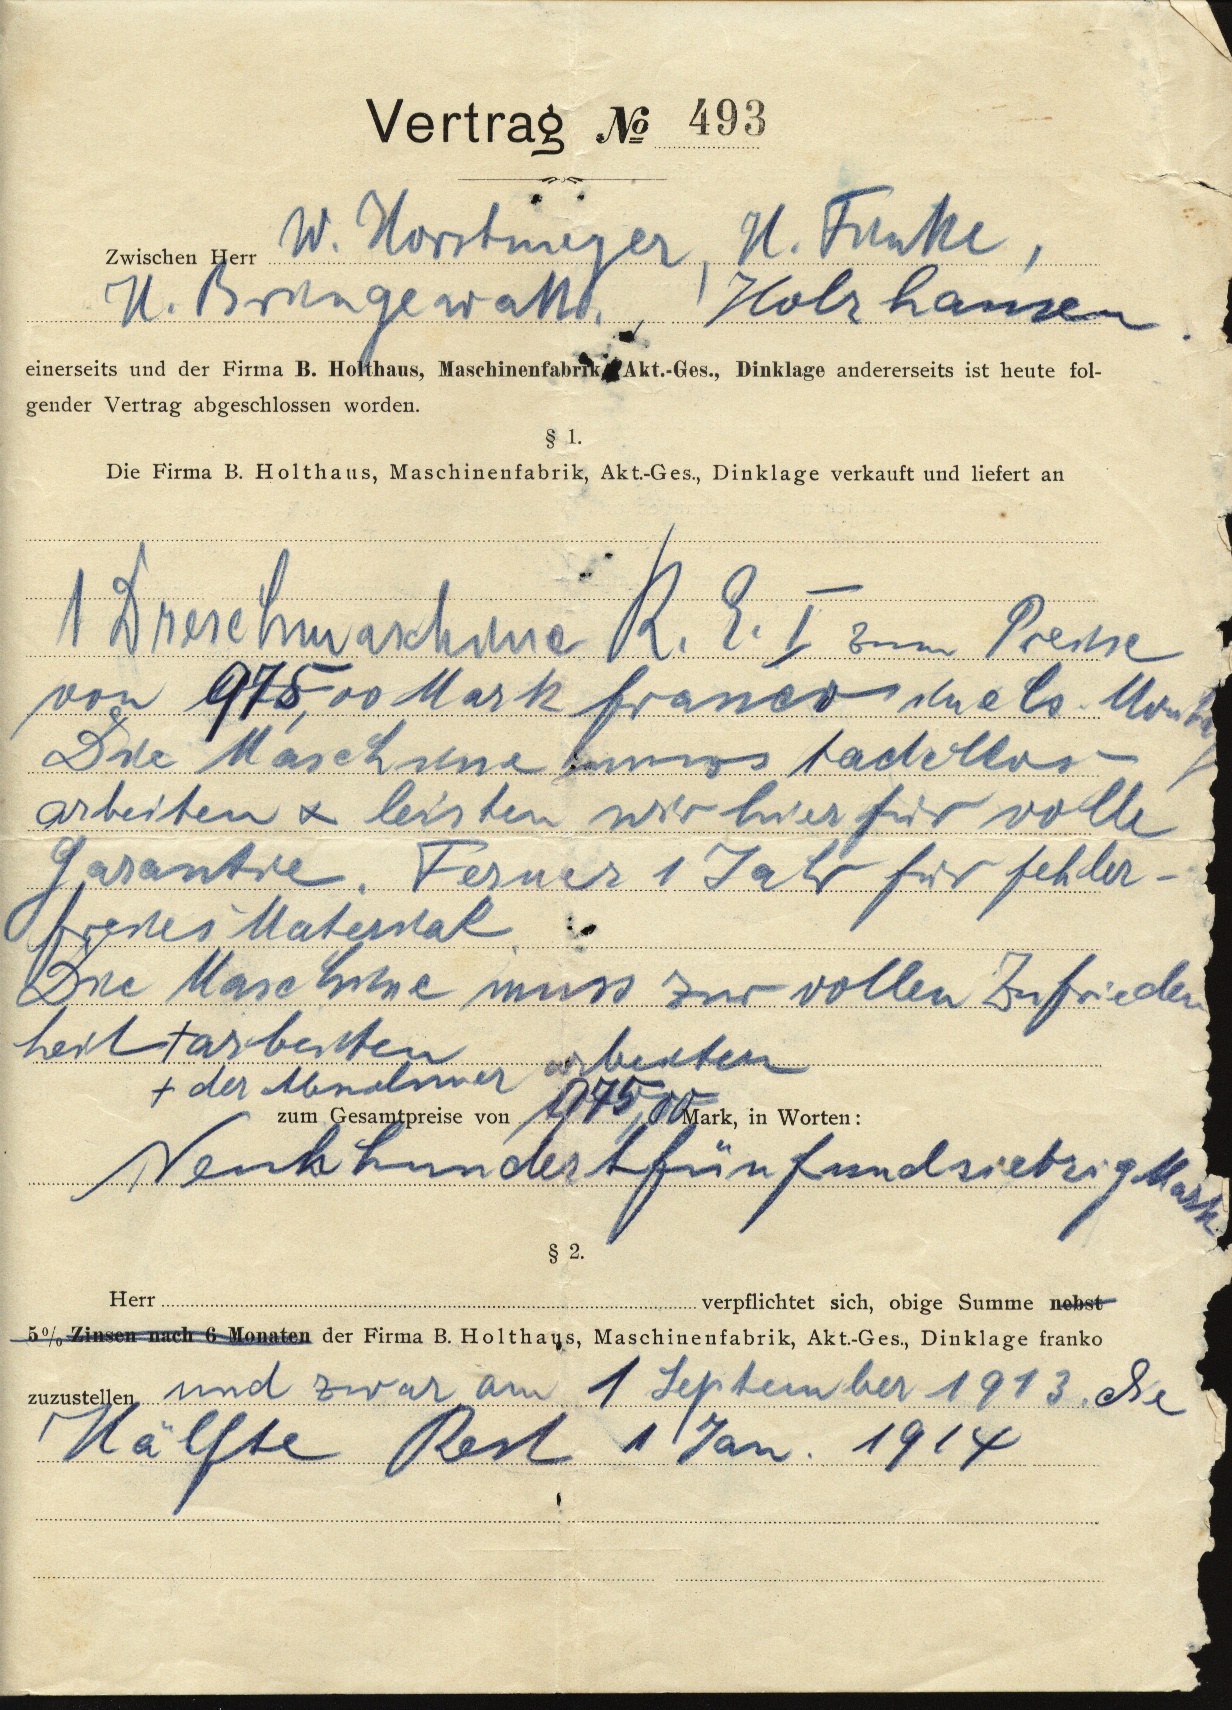 Vertrag № 493
Zwischen Herr W. Horstmeyer, H. Funke,
H. Brüngewatt, Holzhausen.
einerseits und der Firma B. Holthaus, Maschinenfabrik, Akt.-Ges., Dinklage andererseits ist heute fol-
gender Vertrag abgeschlossen worden.
§ 1.
Die Firma B. Holthaus, Maschinenfabrik, Akt.-Ges., Dinklage verkauft und liefert an
1 Dreschmaschine R. E. I zum Preise
von 975,00 Mark franco incls. Montag
Die Maschine muss tadellos
arbeiten & leisten wir hierfür volle
Garantie. Ferner 1 Jahr für fehler-
freies Material
Die Maschine muss zur vollen Zufrieden
heit + arbeiten arbeiten
+ der Abnehmer
zum Gesamtpreise von 975,00 Mark, in Worten:
Neunhundertfünfundsiebzig Mark.
§ 2.
Herr verpflichtet sich, obige Summe nebst
5% Zinsen nach 6 Monaten der Firma B. Holthaus, Maschinenfabrik, Akt.-Ges., Dinklage franko
zuzustellen und zwar am 1 September 1913. die
Hälfte Rest 1 Jan. 1914